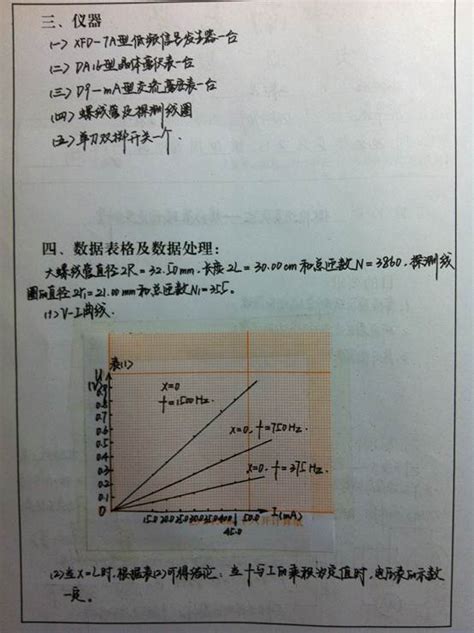 三、仪器
(一) XFD-7A型低频信号发生器一台
(二) DA16型晶体毫伏表一台
(三) D9-mA型交流毫安表一台
(四) 螺线管及探测线圈
(五) 单刀双掷开关一个.
四、数据表格及数据处理:
大螺线管直径2R=32.50mm.长度2L=30.00cm和总匝数N=3860.探测线
圈的直径2r₁=21.00mm和总匝数N₁=355.
(1) V-I曲线.
表(1)
U
(V)
0.9
0.8
0.7
0.6
0.5
0.4
0.3
0.2
0.1
0
X=0
f=1500Hz.
X=0. f=750Hz.
X=0. f=375Hz.
15.0 20.0 25.0 30.0 35.0 40.0 50.0 I(mA)
45.0
(2) 在X=L时.根据表(2)可得结论: 当f与I的乘积为定值时,电压表的示数
一定。